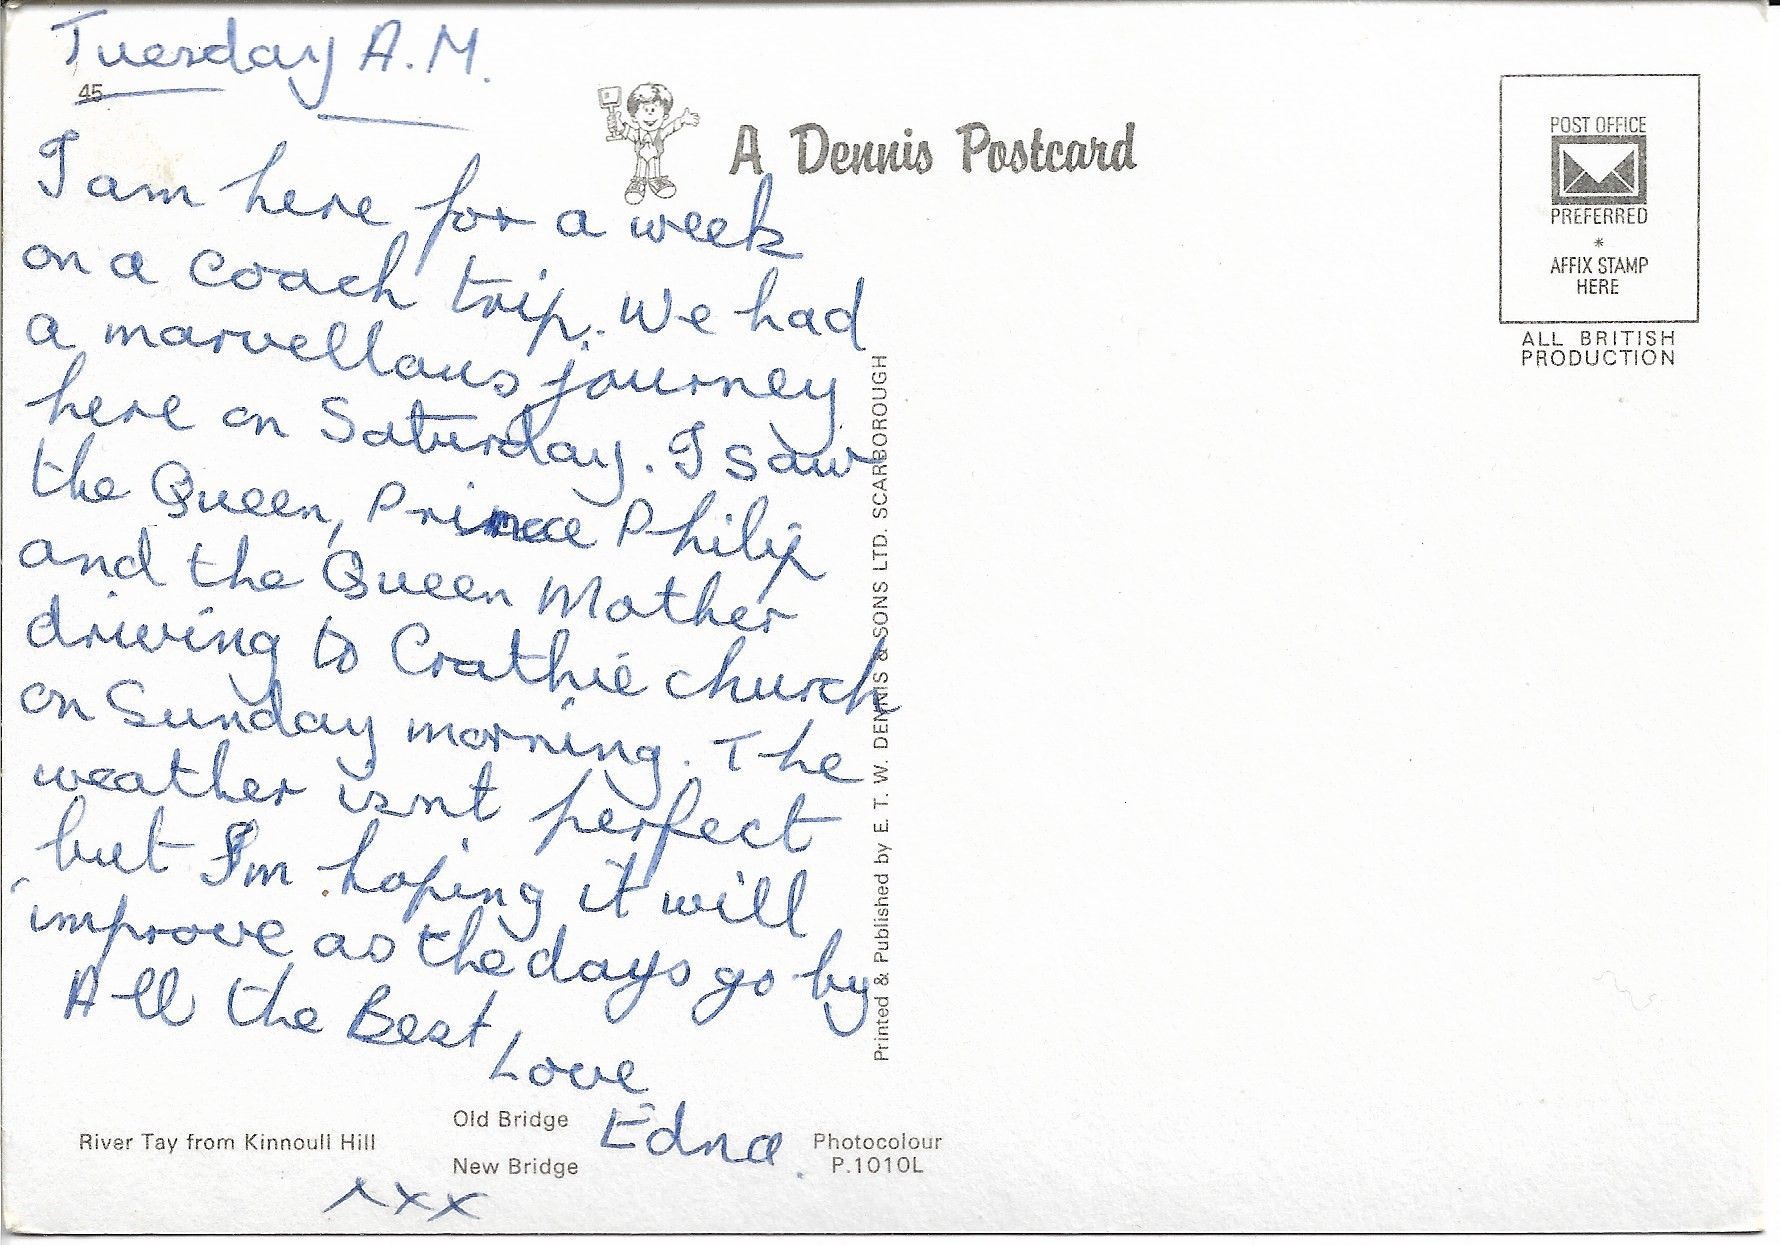 Tuesday A.M.
45
I am here for a week
on a coach trip. We had
a marvellous journey
here on Saturday. I saw
the Queen, Prince Philip
and the Queen Mother
driving to Crathie church
on Sunday morning. The
weather isnt perfect
but I'm hoping it will
improve as the days go by
All the Best,
Love
Edna.
xxx
A Dennis Postcard
POST OFFICE
PREFERRED
*
AFFIX STAMP
HERE
ALL BRITISH
PRODUCTION
Printed & Published by E. T. W. DENNIS & SONS LTD. SCARBOROUGH
River Tay from Kinnoull Hill
Old Bridge
New Bridge
Photocolour
P.1010L